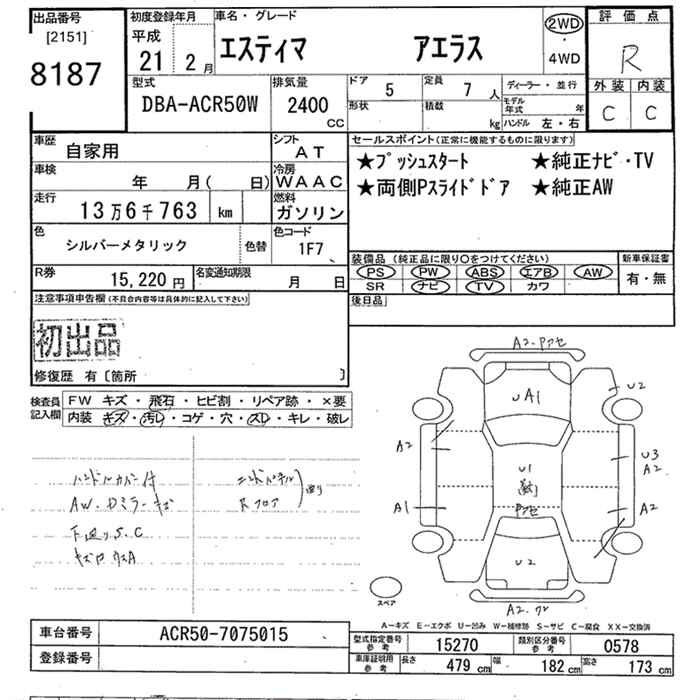 出品番号
[2151]
8187
初度登録年月
平成
21 2月
車名・グレード
エスティマ アエラス
2WD
・
4WD
評価点
R
外装 内装
C C
型式
DBA-ACR50W
排気量
2400
CC
ドア 5
形状
定員 7 人
積載 kg
ディーラー・並行
モデル年式 年
ハンドル 左・右
車歴
自家用
シフト
AT
車検
年 月( 日)
冷房
WAAC
走行
13万6千763 km
燃料
ガソリン
色
シルバーメタリック
色替
色コード
1F7
R券
15,220円
名変通知期限
月 日
セールスポイント(正常に機能するものに限ります)
★プッシュスタート ★純正ナビ・TV
★両側Pスライドドア ★純正AW
装備品 (純正品に限り○をつけてください)
新車保証書
PS PW ABS エアB AW
SR ナビ TV カワ
有・無
後日品
注意事項申告欄(不具合内容等は具体的に記入して下さい)
初出品
修復歴 有〔箇所 〕
検査員記入欄
FW キズ・飛石・ヒビ割・リペア跡・×要
内装 キズ・汚レ・コゲ・穴・スレ・キレ・破レ
ハンドルカバー付
AW・Dミラーキズ
下廻りS.C
Rフロア
A2・Pアセ
UA1
U2
A2
U3
A2
U1
Pアセ
A1
A2
U2
A2・ワレ
スペア
A−キズ E−エクボ U−凹み W−補修跡 S−サビ C−腐食 XX−交換済
車台番号
ACR50-7075015
登録番号
型式指定番号
参考
15270
類別区分番号
参考
0578
車庫証明用
参考
長さ 479 cm
幅 182 cm
高さ 173 cm